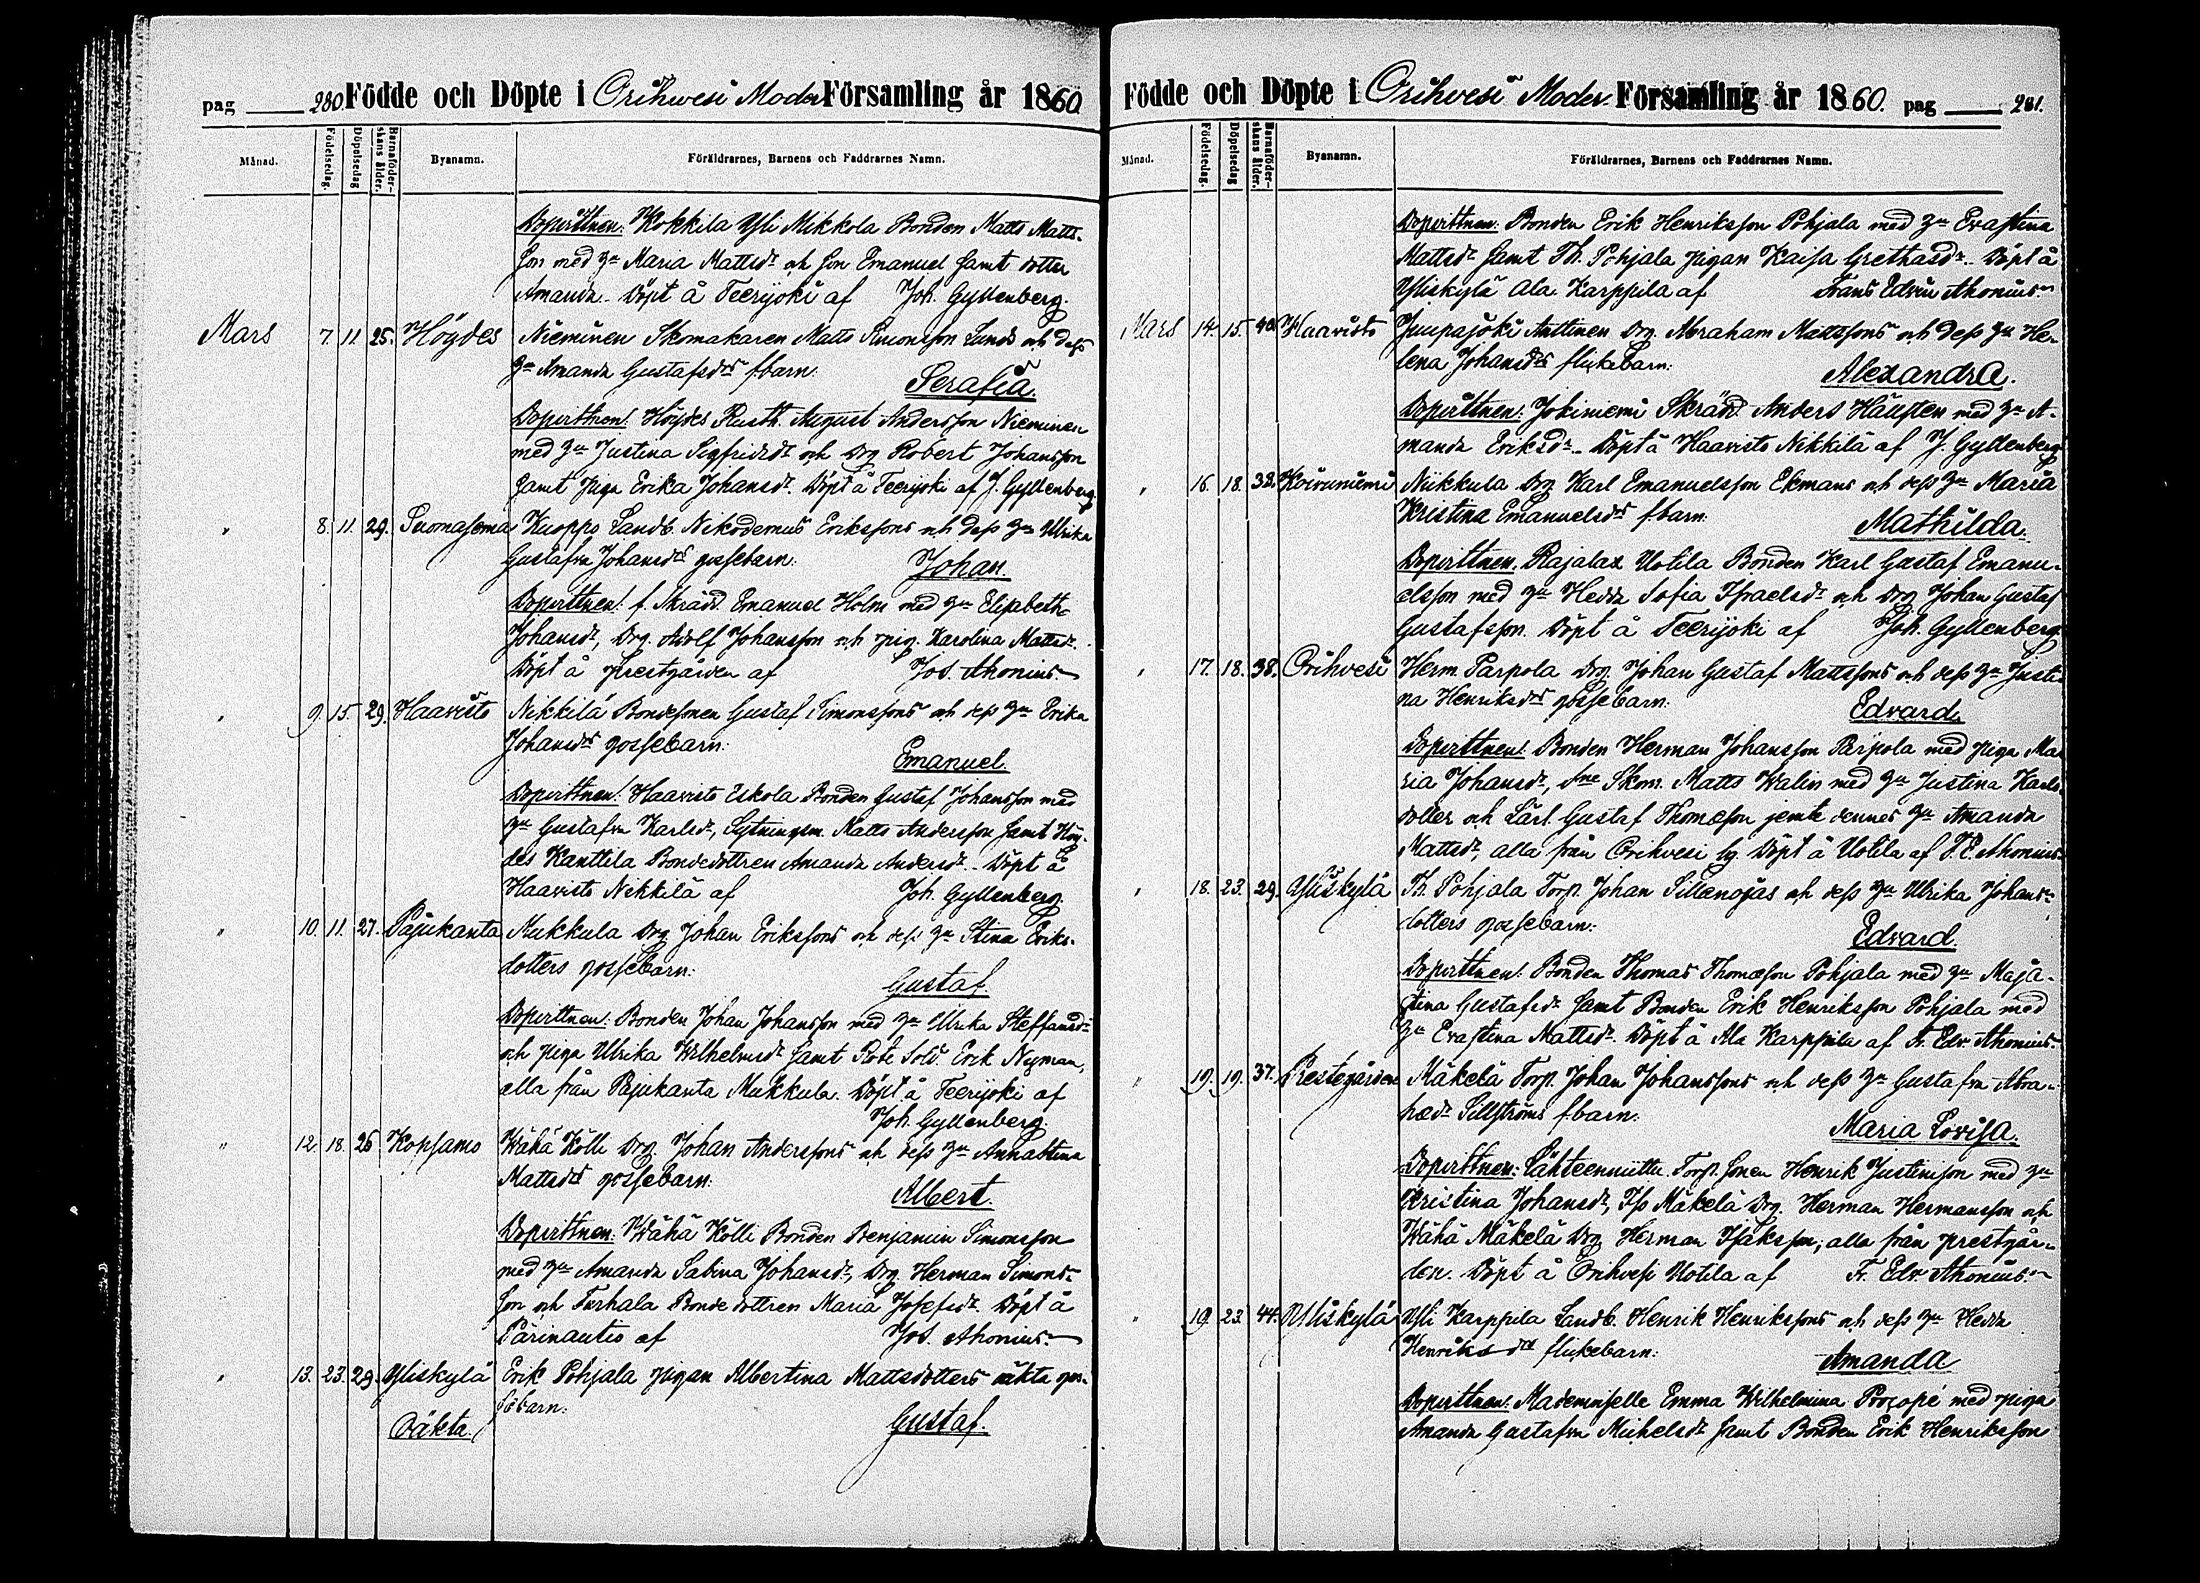 pag 280 Födde och Döpte i Orihwesi Moder Församling år 1860
Månad. Födelsedag. Döpelsedag Barnaföderskans ålder. Byanamn. Föräldrarnes, Barnens och Faddrarnes Namn.
Dopvittnen: Kokkila Yli Mikkola Bonden Matts Matts-
son med hu Maria Mattsdr och son Emanuel samt dotter
Amanda. Döpt å Teerijoki af Joh. Gyllenberg.
Mars 7. 11. 25. Höydes Nieminen Skomakaren Matts Simonsson Lunds och dess
hu Amanda Gustafsdrs f.barn: Serafia.
Dopvittnen: Höydes Rusth. August Andersson Nieminen
med hu Justina Sigfridsdr och drg Robert Johansson
samt piga Erika Johansdr. Döpt å Teerijoki af J. Gyllenberg
" 8. 11. 29. Suomasema Kuoppo Landb. Nikodemus Erikssons och dess hu Ulrika
Gustafva Johansdrs gossebarn: Johan.
Dopvittnen: f. Skrädd. Emanuel Holm med hu Elisabeth
Johansdr, Drg. Adolf Johansson och pig. Karolina Mattsdr.
Döpt å prestgården af Jos. Ahonius
" 9. 15. 29. Haavisto Nikkilä Bondesonen Gustaf Simonssons och dess hu Erika
Johansdrs gossebarn: Emanuel.
Dopvittnen: Haavisto Eskola Bonden Gustaf Johansson med
hu Gustafva Karlsdr, Sytningsm. Matts Andersson samt Höy-
des Kanttila Bondedottren Amanda Andersdr. Döpt å
Haavisto Nikkilä af Joh. Gyllenberg.
" 10. 11. 27. Pajukanta Mukkula Drg. Johan Erikssons och dess hu Stina Eriks-
dotters gossebarn: Gustaf.
Dopvittnen: Bonden Johan Johansson med hu Ulrika Steffansdr
och piga Ulrika Wilhelmsdr samt Rote Sold. Erik Nyman,
alla från Pajukanta Mukkula. Döpt å Teerijoki af
Joh. Gyllenberg.
" 12. 18. 26 Kopsamo Wähä Kölli Drg. Johan Anderssons och dess hu Annastina
Mattsdrs gossebarn: Albert.
Dopvittnen: Wähä Kölli Bonden Benjamin Simonsson
med hu Amanda Sabina Johansdr, Drg. Herman Simons-
son och Turhala Bonde dottren Maria Josefsdr. Döpt å
Pärinautio af Jos. Ahonius
" 13. 23. 29. Yliskylä Erik Pohjala pigan Albertina Mattsdotters oäkta gos-
sebarn: Gustaf.
Oäkta.
Födde och Döpte i Orihvesi Moder Församling år 1860. pag 281.
Månad. Födelsedag. Döpelsedag Barnaföderskans ålder. Byanamn. Föräldrarnes, Barnens och Faddrarnes Namn.
Dopvittnen: Bonden Erik Henriksson Pohjala med hu Evastina
Mattsdr samt Th. Pohjala pigan Kaisa Grethasdr. Döpt å
Yliskylä Ala Karppila af Frans Edvin Ahonius
Mars 14. 15. 40. Haavisto Juupajoki Anttinen Drg. Abraham Mattssons och dess hu He-
lena Johansdrs flickebarn: Alexandra.
Dopvittnen: Jokiniemi Skrädd. Anders Häusten med hu A-
manda Eriksdr. Döpt å Haavisto Nikkilä af J. Gyllenberg
" 16. 18. 32. Koivuniemi Niikkula Drg Karl Emanuelsson Ekmans och dess hu Maria
Kristina Emanuelsdrs f.barn: Mathilda.
Dopvittnen. Rajalax Uotila Bonden Karl Gustaf Emanu-
elsson med hu Hedda Sofia Israelsdr och Drg Johan Gustaf
Gustafsson. Döpt å Teerijoki af Joh. Gyllenberg
" 17. 18. 38. Orihvesi Herm. Parpola Drg. Johan Gustaf Mattssons och dess hu Justi-
na Henriksdrs gossebarn: Edvard.
Dopvittnen: Bonden Herman Johansson Parpola med piga Ma-
ria Johansdr, Skom. Matts Walin med hu Justina Karls-
dotter och Lärl. Gustaf Thomæson jemte dennes hu Amanda
Mattsdr, alla från Orihvesi by. Döpt å Uotila af F. E. Ahonius
" 18. 23. 29. Yliskylä Th. Pohjala Torp. Johan Sillanojas och dess hu Ulrika Johans-
dotters gossebarn: Edvard.
Dopvittnen: Bonden Thomas Thomæson Pohjala med hu Maja-
stina Gustafsdr samt Bonden Erik Henriksson Pohjala med
hu Evastina Mattsdr. Döpt å Ala Karppila af Fr. Edv. Ahonius
" 19. 19. 37. Prestegården Mäkelä Torp. Johan Johanssons och dess hu Gustafva Abra-
hædr Sillströms f.barn: Maria Lovisa.
Dopvittnen: Lähteenniittu Torp. sonen Henrik Justinson med hu
Kristina Johansdr, Iso Mäkelä Drg. Herman Hermansson och
Wähä Mäkelä Drg Herman Isaksson, alla från prestgår-
den. Döpt å Orihvesi Uotila af Fr. Edv Ahonius
" 19. 23. 44. Yliskylä Yli Karppila Landb. Henrik Henrikssons och dess hu Hedda
Henriksdrs flickebarn: Amanda
Dopvittnen: Mademoiselle Emma Wilhelmina Procopé med piga
Amanda Gustafva Michelsdr samt Bonden Erik Henriksson